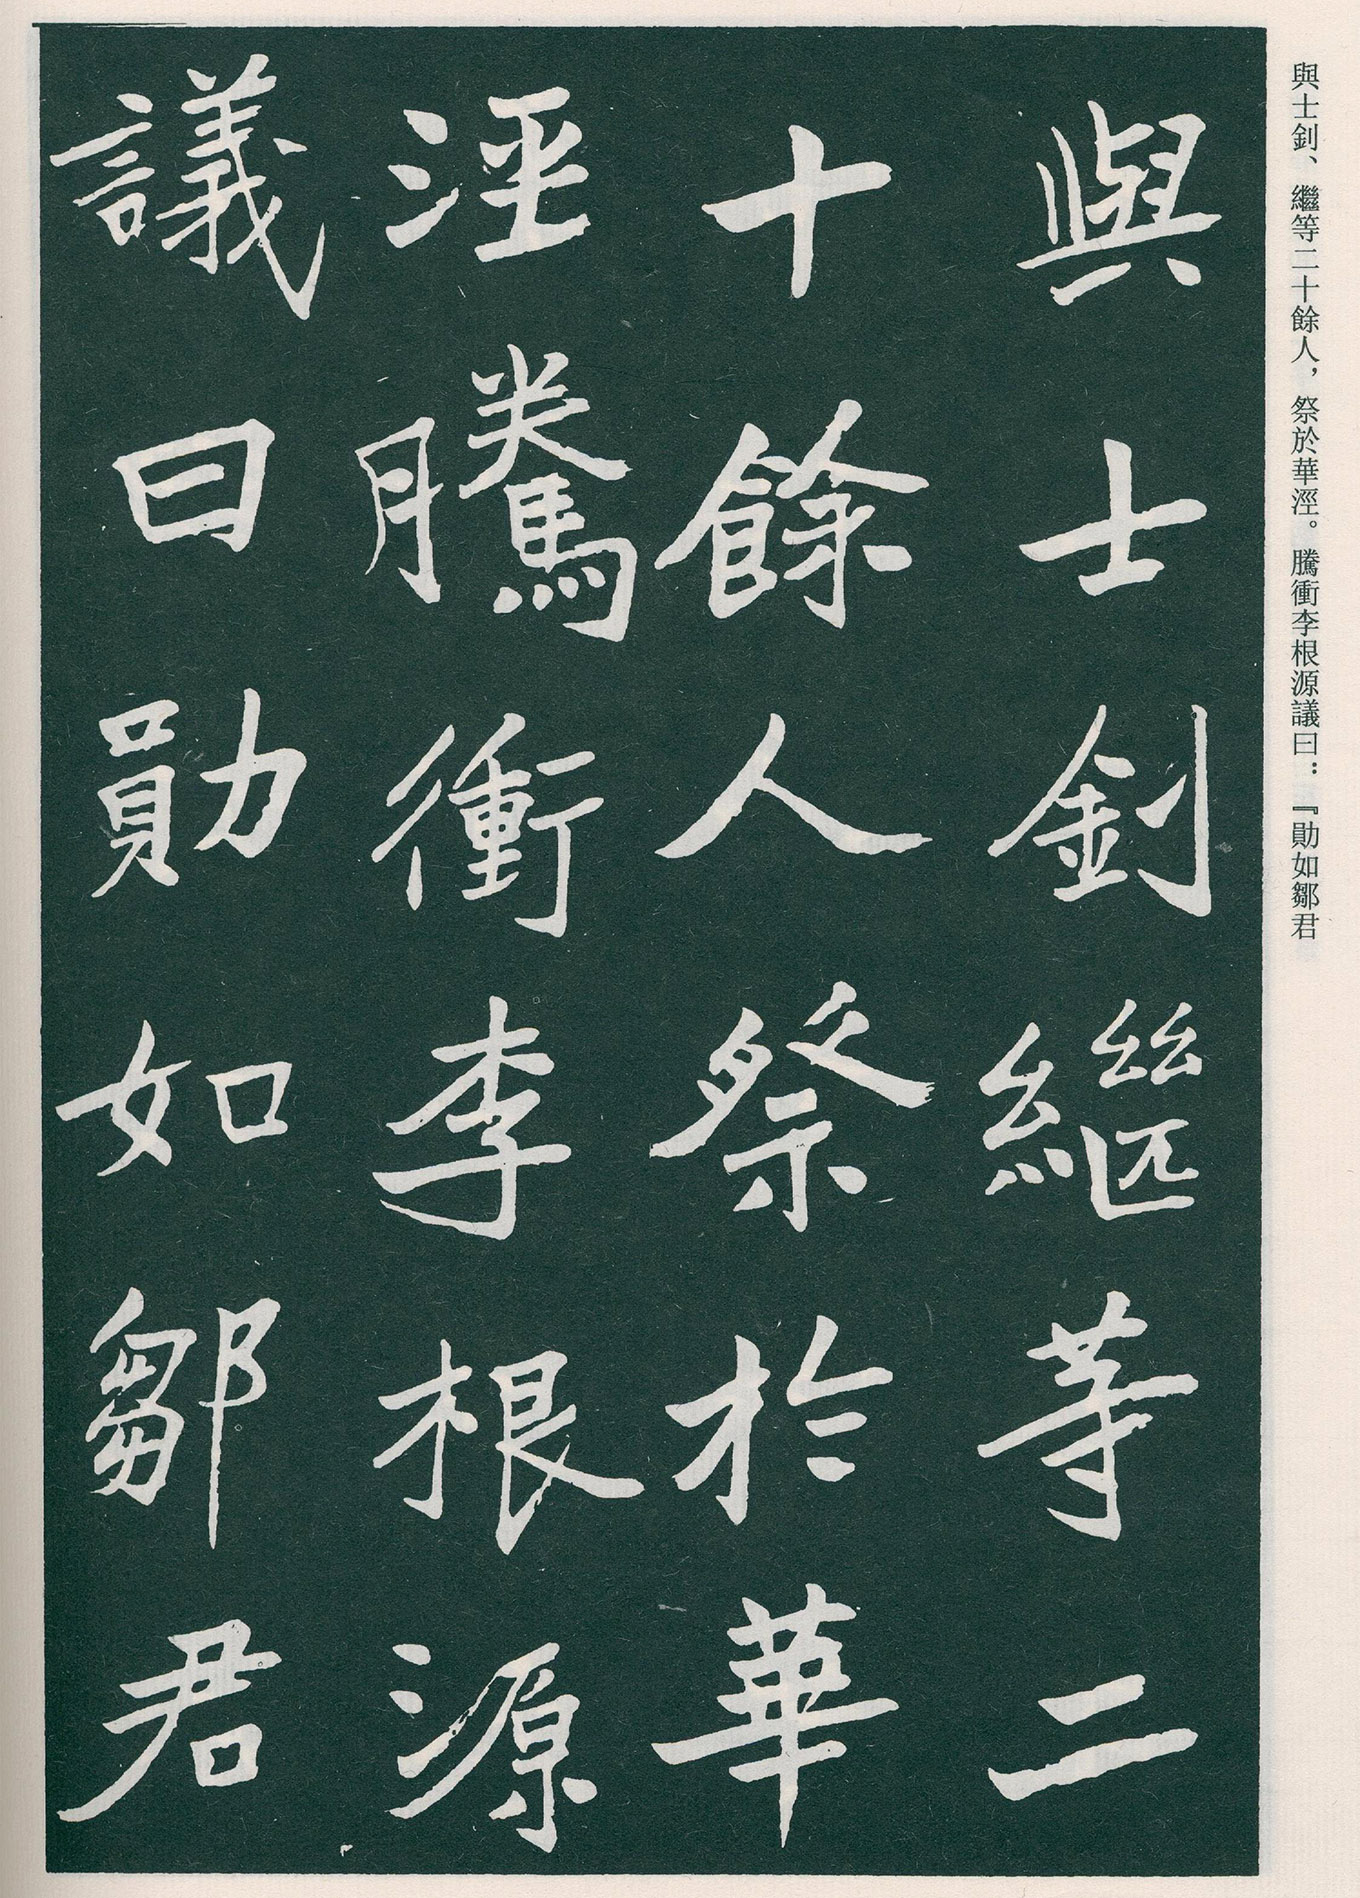 與士釗、繼等二十餘人，祭於華涇。騰衝李根源議曰：『勛如鄒君
與士釗繼等二
十餘人祭於華
涇騰衝李根源
議曰勛如鄒君